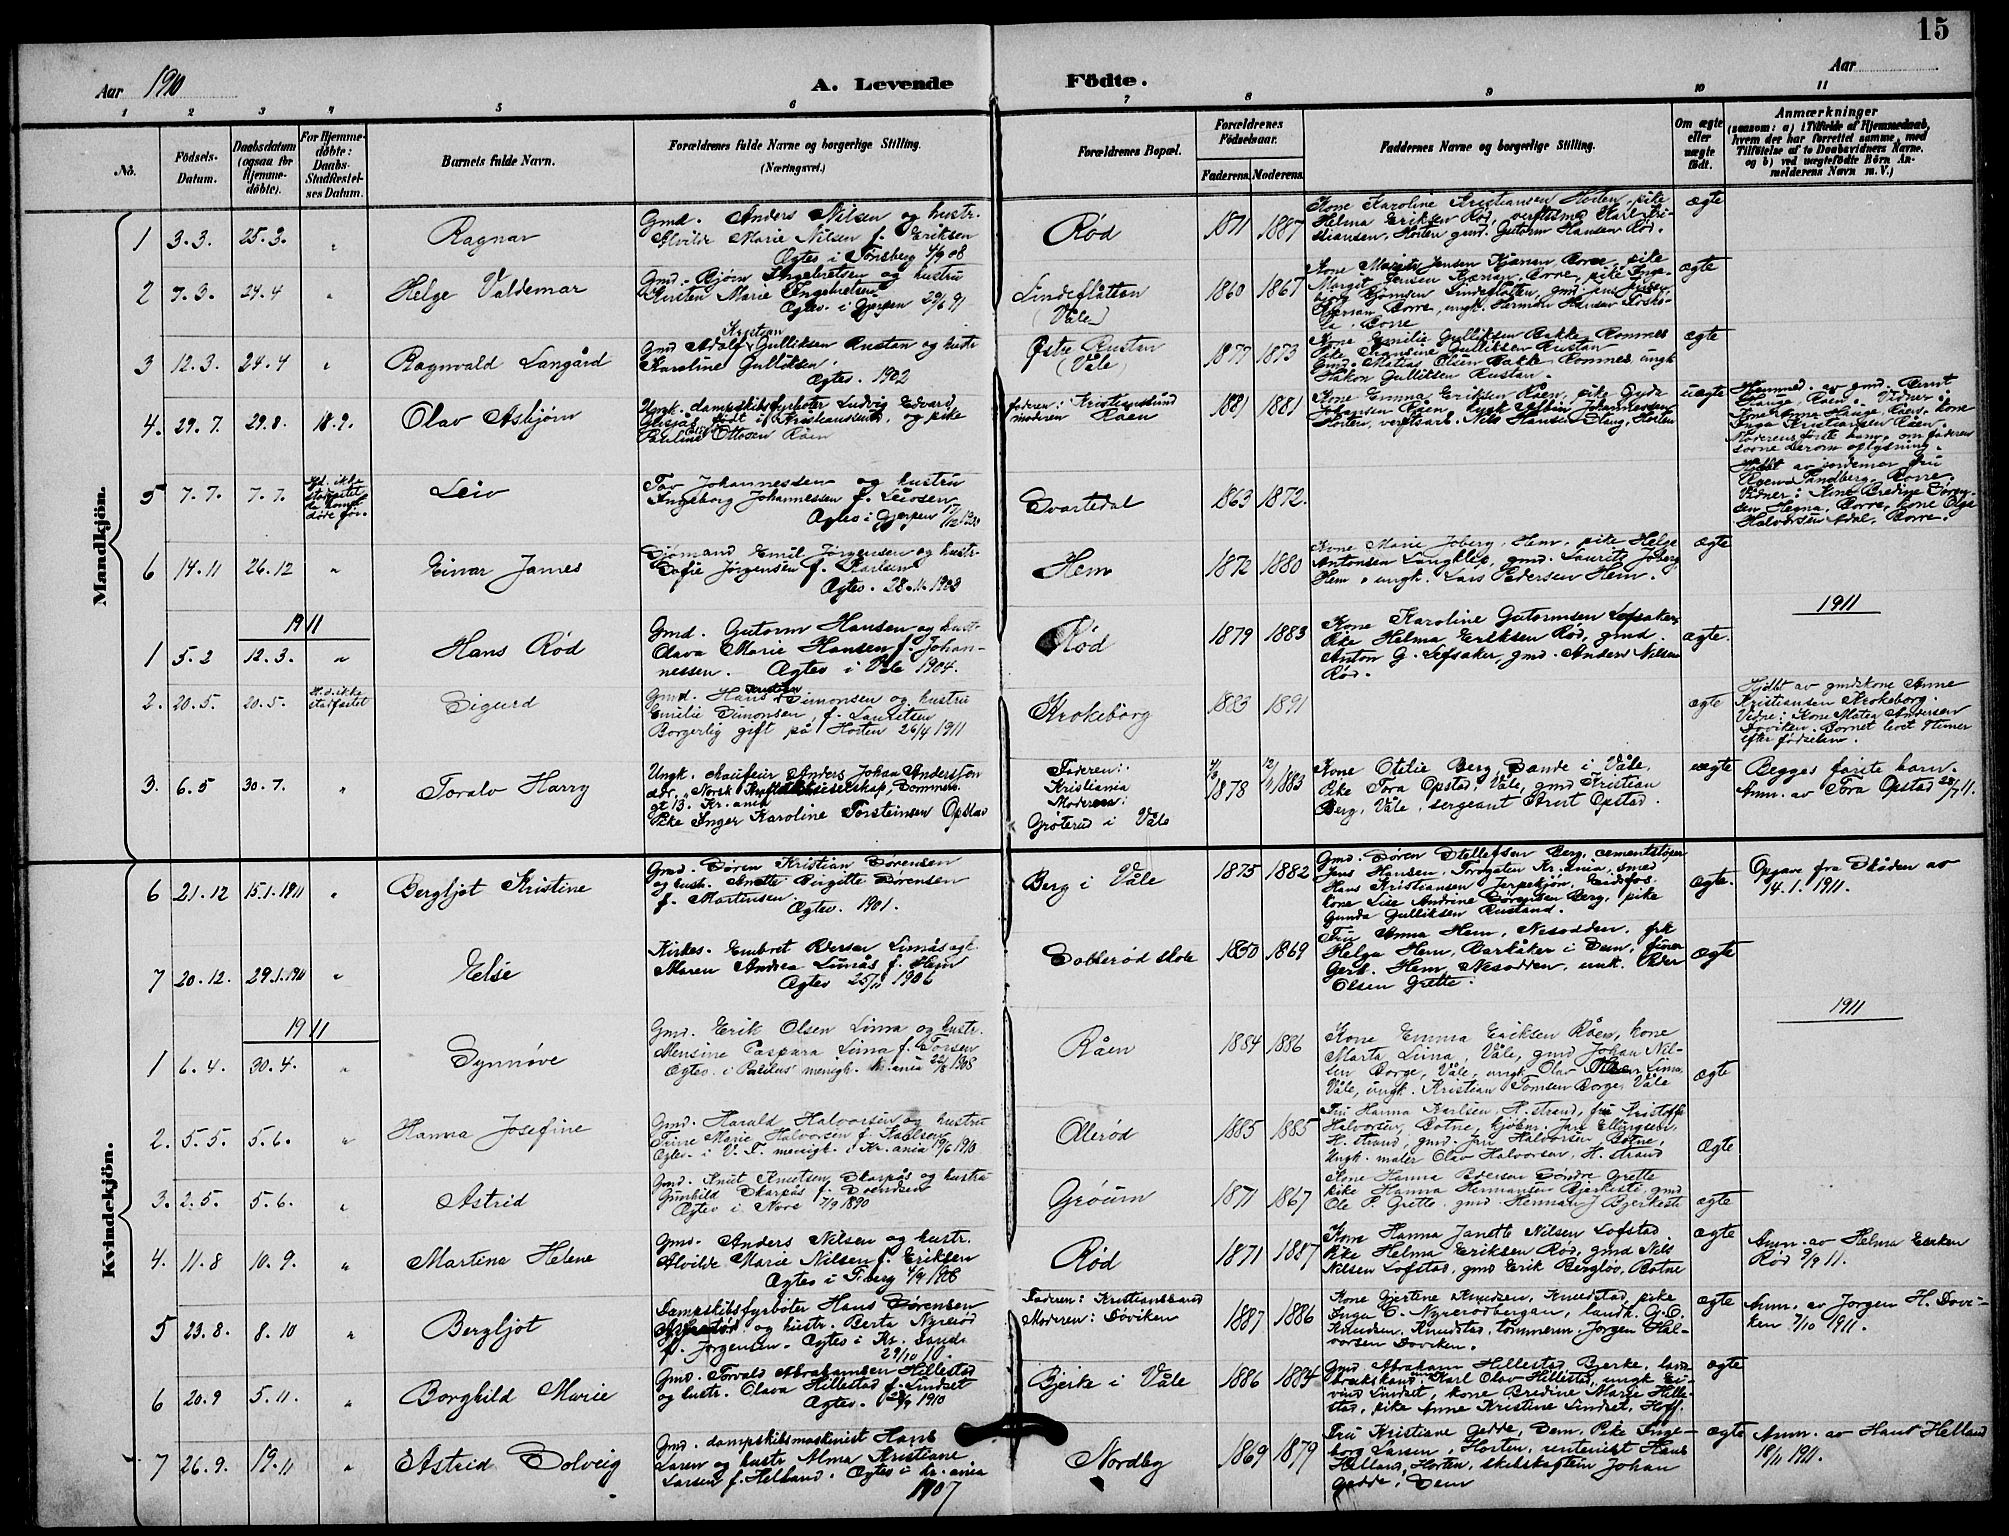 15
Aar 1910
A. Levende Födte.
Aar
1 2 3 4 5 6 7 8 9 10 11
No.
Födsels-
Datum.
Daabsdatum
(ogsaa for
Hjemme-
döbte).
For Hjemme-
döbte:
Daabs-
Stadfæstel-
ses Datum.
Barnets fulde Navn.
Forældrenes fulde Navne og borgerlige Stilling.
(Næringsvei.)
Forældrenes Bopæl.
Forældrenes
Födselsaar.
Faderens. Moderens.
Faddernes Navne og borgerlige Stilling.
Om ægte
eller
uægte
födt.
Anmærkninger
(saasom: a) i Tilfælde af Hjemmedaab,
hvem der har forrettet samme, med
Tilföielse af to Daabsvidners Navne,
og b) ved uægtefödte Börn An-
melderens Navn m. V.)
Mandkjön.
1 3.3. 25.3. " Ragnar
Gmd. Anders Nilsen og hustr.
Alvilde Marie Nilsen f. Eriksen
Ægtev. i Tønsberg 4/9 08
Rød 1871 1887
Kone Karoline Kristiansen Horten, pike
Helma Eriksen Rød, Karl Kri-
stiansen, Horten gmd. Gutorm Hansen Rød.
ægte
2 7.3. 24.4 " Helge Valdemar
Gmd. Bjørn Ingebretsen og hustru
Kirsten Marie Ingebretsen
Ægtev. i Gjerpen 29/6 91
Lindeflåtten
(Våle)
1860 1867
Kone Jensen Kjæran Borre, pike
Margit Jensen Kjæran, Borre, pike Inge-
borg Bjørnsen Lindeflåtten, gmd. Jensen
Kjæran Borre, ungk. Herman Hansen
Borre
ægte
3 12.3. 24.4 " Ragnvald Langård
Gmd Adolf Kristian Gulliksen Rustan og hustr
Karoline Gulliksen.
Ægtev. 1902
Østre Rustan
(Våle)
1877 1873
Kone Emilie Gulliksen Bakke, Ramnes
Pike Gulliksen Rustan
Gmd. Matias Olsen Bakke Ramnes, ungk
Håkon Gulliksen Rustan.
ægte
4. 29.7. 29.8. 18.9. Olav Asbjørn
Ungk. dampskibsfyrbøter Ludvig Edvard
født i Kristiansund, og pike
Pauline Ottosen Råen
faderen: Kristianssund
moderen Råen
1881 1881
Kone Emma Eriksen Råen, pike Gyda
Johansen Råen, ungk Johannessen
Horten, verftsarb. Nils Hansen Stang, Horten
uægte
Hjemmed. av gmd. Bernt
Hauge, Råen. Vidner:
Kone Anna Hauge, Råen, kone
Inga Kristiansen Råen.
Moderens første barn, om faderen
savne derom oplysning.
5 7.7. 7.7. Hd. ikke
stadfæstet
da barnet
døde før.
Leiv
Tov Johannessen og hustru
Ingeborg Johannessen f. Leiosen
Ægtev i Gjerpen
Svartedal 1863 1872.
Hjdbt av jordemor fru
Sandberg, Borre.
Vidner: Kone Bredine Søren-
sen Hegna, Borre, kone Olga
Halvorsen Adal, Borre.
6 14.11 26.12 " Einar James
Sjømand Emil Jørgensen og hustr.
Sofie Jørgensen f. Karlsen
Ægtev. 28.11.1908
Hem 1872 1880
Kone Marie Joberg, Hem, pike Helga
Antonsen Langklep, gmd. Laurits Joberg
Hem, ungk. Lars Pedersen Hem.
ægte
1911 1911
1 5.2 12.3. " Hans Rød
Gmd. Gutorm Hansen og hustr
Olava Marie Hansen f. Johan-
nessen. Ægtev i Våle 1904.
Rød 1879 1883
Kone Karoline Gutormsen Lefsaker
Pike Helma Eriksen Rød, gmd.
Anton G. Lefsaker, gmd. Anders Nilsen
Rød.
ægte.
2. 20.5. 20.5. H.d. ikke
stadfæstet
Sigurd
Gmd. Hans Simonsen og hustru
Emilie Simonsen, f. Lauritsen
Borgerlig gift på Horten 26/4 1911
Krokeborg 1883 1891
ægte
Hjdbt av gmdskone Anne
Kristiansen Krokeborg
Vidne: Kone Matea Andersen
Doviken. Barnet levet 7 timer
efter fødselen.
3. 6.5 30.7. " Toralv Harry
Ungk. chaufeur Anders Johan Andersson
adr. Norsk Dommers-
gt 13. Kr.ania
Pike Inger Karoline Torsteinsen Opstad
Faderen:
Kristiania
Moderen:
Grøterud i Våle
4/3 1878 12/1 1883
Kone Otilie Berg Sande i Våle,
Pike Tora Opstad, Våle, gmd Kristian
Berg, Våle, sergeant Arnt Opstad.
uægte
Begges første barn.
Anm. av Tora Opstad 29/7 11.
Kvindekjön.
6 21.12 15.1.1911 " Bergljot Kristine
Gmd. Søren Kristian Sørensen
og hust. Anette Birgitte Sørensen
f. Martinsen.
Ægtev. 1901.
Berg i Våle 1875 1882
Gmd. Søren Stellefsen Berg, cementstøper
Jens Hansen, Torvgaten Kr.ania, smed
Hans Kristiansen Jerpekjøn, Eidsfos.
kone Lise Andrine Sørensen Berg, pike
Gunda Gulliksen Rustand.
ægte.
Opgave fra Skåden av
14.1.1911.
7 20.12. 29.1.1911 " Else
Kirkes. Embret Iversen Limås og h.
Maren Andrea Limås f. Hem
Ægtev 25/11 1906
Solerød skole 1850 1869
Fru Anna Hem, Nesodden, frk
Helga Hem, Barkåker i Sem,
Gerh. Hem, Nesodden, unk. Peder
Olsen Grette.
ægte
1911 1911
1 6.4. 30.4. " Synnøve
Gmd. Erik Olsen Lima og hustr.
Mensine Caspara Lima f. Torsen
Ægtev. i Paulus menigh. Kr.ania 22/8 1908
Råen 1884 1886
Kone Emma Eriksen Råen, kone
Marta Lima, Våle, gmd Johan Nil-
sen Borge, Våle, ungk Olav Olsen Lima,
Våle, ungk. Kristian Tomsen Borge, Våle
ægte
2. 5.5. 5.6. " Hanna Josefine
Gmd. Harald Halvorsen og hustru
Trine Marie Halvorsen f. Karlsen
Ægtev. i V. F. menigh. i Kr.ania 19/6 1910
Ollerød 1885 1885
Fru Hanna Karlsen, H.strand, fru Kristoffa
Halvorsen, Botne, kjøbm. Jan Ellingsen
H.strand, gmd. Jan Halvorsen, Botne,
Ungk. maler Olav Halvorsen, H.strand
Ægte
3. 2.5. 5.6. " Astrid
Gmd. Knut Knutsen Skarpås og hustru
Gunhild Skarpås f. Svendsen
Ægtev i Nore 17/9 1890
Grøum 1871 1867
Kone Hanna Pedersen Søndre Grette
pike Hanna Hermansen Bjerkeste, gmd
Ole P. Grette, gmd. Herman J Bjerkeste
ægte
4. 11.8 10.9. " Martina Helene
Gmd. Anders Nilsen og hustr.
Alvilde Marie Nilsen f. Eriksen
Ægtev i T.berg 4/9 1908
Rød 1871 1887
Kone Hanna Janette Nilsen Lofstad
Pike Helma Eriksen Rød, gmd Nils
Nilsen Lofstad, gmd Erik Bergløv, Botne
ægte
Anm. av Helma Eriksen
Rød 9/9 11.
5 23.8. 8.10 " Bergljot
Dampskibsfyrbøter Hans Sørensen
og hustr. Berta Nyrerød
f. Jørgensen. Ægtev i Kr. sand
29/10 10.
Faderen: Kristianssand
Moderen: Doviken
1887 1886
Kone Gjertine Knudsen, Knudstad, pike
Inga C. Nyrerødbergan, landh. G. C.
Knudsen, Knudstad, tømmerm. Jørgen Hal-
vorsen Doviken.
ægte
Anm. av Jørgen H. Dovi-
ken 7/10 1911.
6 20.9 5.11. " Borghild Marie
Gmd. Torvald Abrahamsen Hillestad
og hustr. Olava Hillestad f. Lindset
Ægtev. 1910
Bjerke i Våle 1886 1884
Gmd. Abraham Hillestad, Bjerke,
Karl Olav Hillestad, ungk Ei-
vind Lindset, kone Bredine Marie Hille-
stad, pike Anne Kristine Lindset, Hoff.
ægte
7 26.9. 19.11 " Astrid Solveig
Gmd. dampskibsmaskinist Hans
Larsen og hustr Alma Kristiane
Larsen f. Helland. Ægtev i kr.ania
1907
Nordby 1869 1879
Fru Kristiane Gedde, Sem, Pike Inge-
borg Larsen, Horten, rentenist Hans
Helland, Horten, skibskaptein Johan
Gedde, Sem
ægte
Anm. av Hans Helland
18/11 1911.